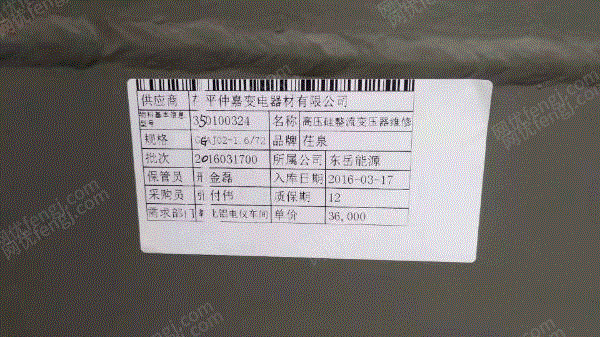 供应商 平仲嘉变电器材有限公司
物料基本信息型号 350100324 名称 高压硅整流变压器维修
规格 GGAJ02-1.6/72 品牌 荏泉
批次 2016031700 所属公司 东岳能源
保管员 邢金磊 入库日期 2016-03-17
采购员 张付伟 质保期 12
需求部门 氧化铝电仪车间 单价 36,000
网优fengj.com